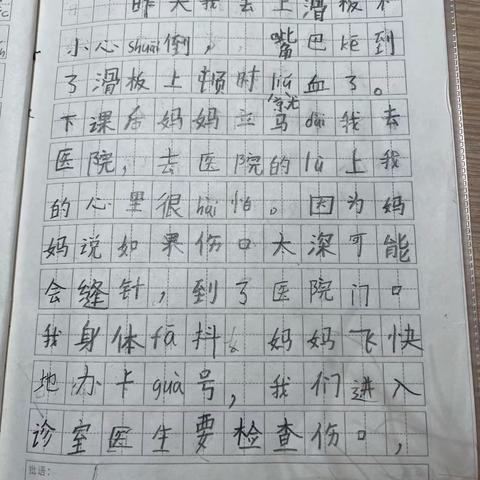 昨天我去上滑板不
小心shuāi倒，嘴巴kē到
了滑板上顿时liú血了。
下课后妈妈立就马dài我去
医院，去医院的lù上我
的心里很hài怕。因为妈
妈说如果伤口太深可能
会缝针，到了医院门口
我身体fā抖。妈妈飞快
地办卡guà号，我们进入
诊室医生要检查伤口，
批语：